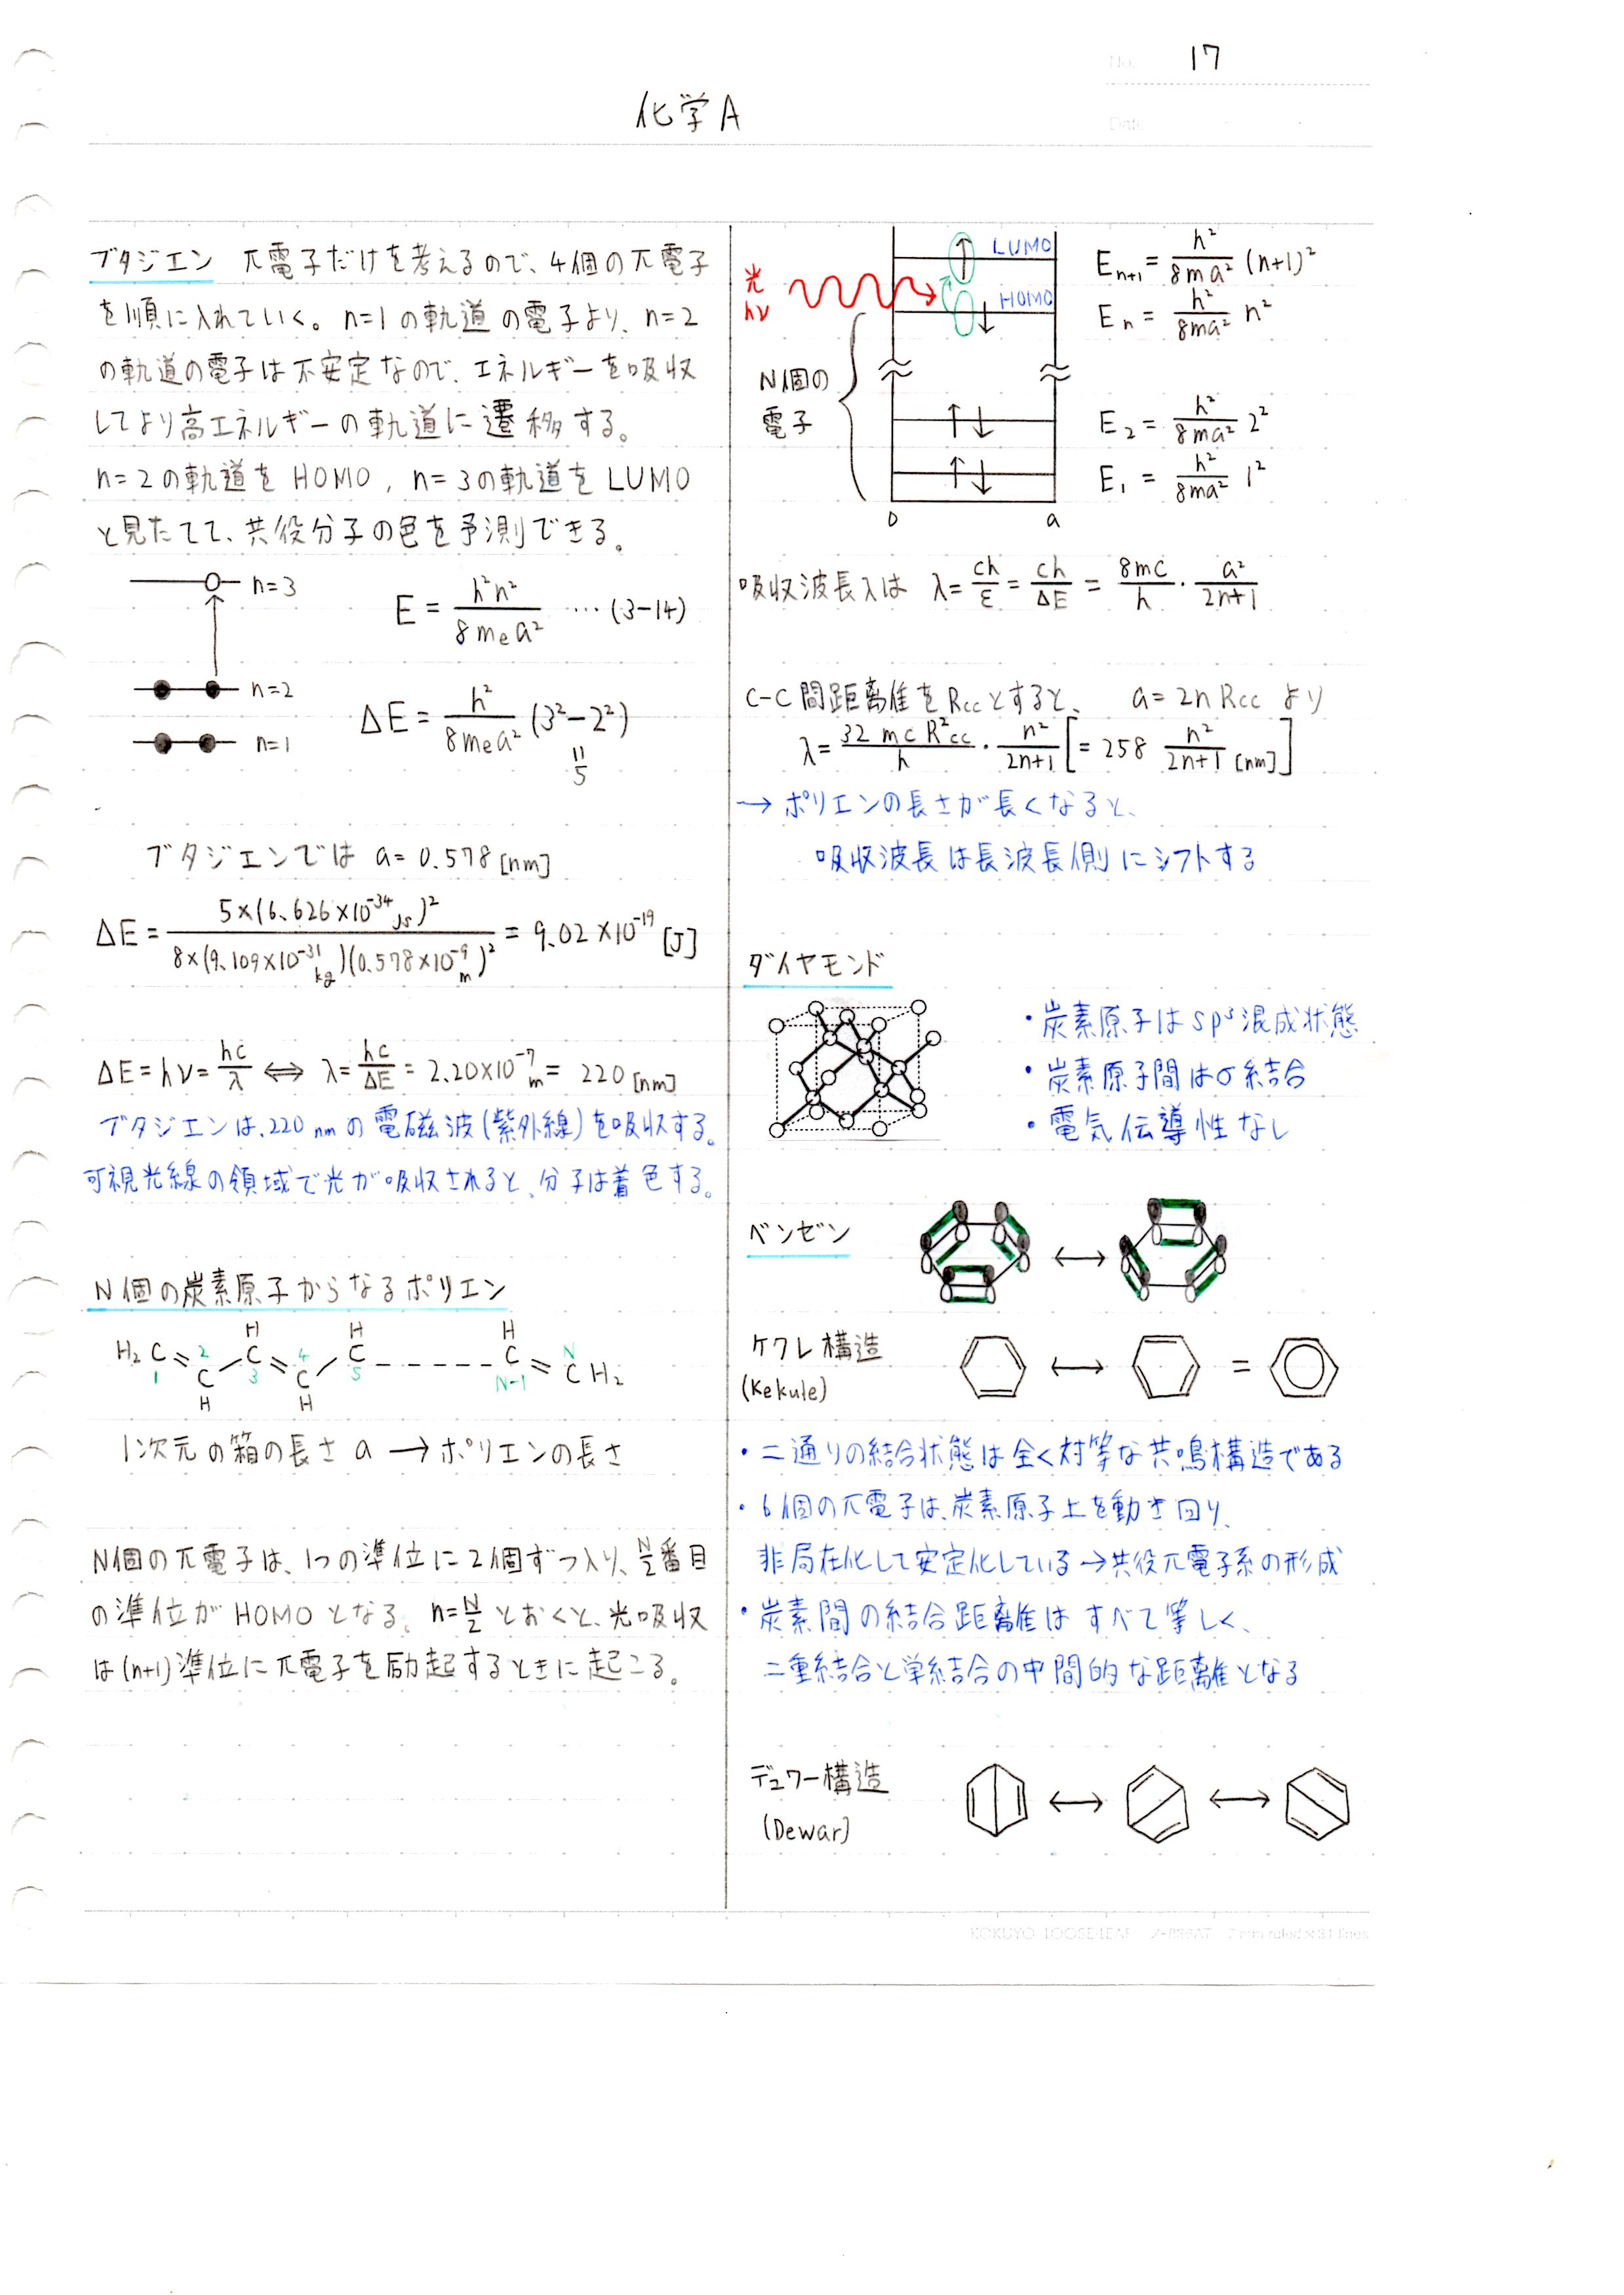 No. 17
化学A
Date
ブタジエン π電子だけを考えるので、4個のπ電子
を順に入れていく。n=1の軌道の電子より、n=2
の軌道の電子は不安定なので、エネルギーを吸収
してより高エネルギーの軌道に遷移する。
n=2の軌道をHOMO, n=3の軌道をLUMO
と見たてて、共役分子の色を予測できる。
n=3
E = h²n²/8mₑa² …(3-14)
n=2
ΔE = h²/8mₑa² (3²-2²)
n=1
=5
ブタジエンでは a=0.578[nm]
ΔE = 5×(6.626×10⁻³⁴Js)²/8×(9.109×10⁻³¹kg)(0.578×10⁻⁹m)² = 9.02×10⁻¹⁹[J]
ΔE=hν=hc/λ ⇔ λ=hc/ΔE=2.20×10⁻⁷m=220[nm]
ブタジエンは、220nmの電磁波(紫外線)を吸収する。
可視光線の領域で光が吸収されると、分子は着色する。
N個の炭素原子からなるポリエン
H H H
H₂C=C-C=C-C------C=CH₂
1 2 3 4 5 N-1 N
H H
1次元の箱の長さa→ポリエンの長さ
N個のπ電子は、1つの準位に2個ずつ入り、N/2番目
の準位がHOMOとなる。n=N/2とおくと、光吸収
は(n+1)準位にπ電子を励起するときに起こる。
LUMO Eₙ₊₁=h²/8ma² (n+1)²
光
hν
HOMO Eₙ=h²/8ma² n²
N個の
電子
E₂=h²/8ma² 2²
E₁=h²/8ma² 1²
0 a
吸収波長λは λ=ch/ε=ch/ΔE=8mc/h・a²/2n+1
C-C間距離をRccとすると、 a=2nRccより
λ=32mcR²cc/h・n²/2n+1[=258 n²/2n+1[nm]]
→ポリエンの長さが長くなると、
吸収波長は長波長側にシフトする
ダイヤモンド
・炭素原子はsp³混成状態
・炭素原子間はσ結合
・電気伝導性なし
ベンゼン
↔
ケクレ構造
(Kekule)
↔ =
・二通りの結合状態は全く対等な共鳴構造である
・6個のπ電子は、炭素原子上を動き回り、
非局在化して安定化している→共役π電子系の形成
・炭素間の結合距離はすべて等しく、
二重結合と単結合の中間的な距離となる
デュワー構造
(Dewar)
↔ ↔